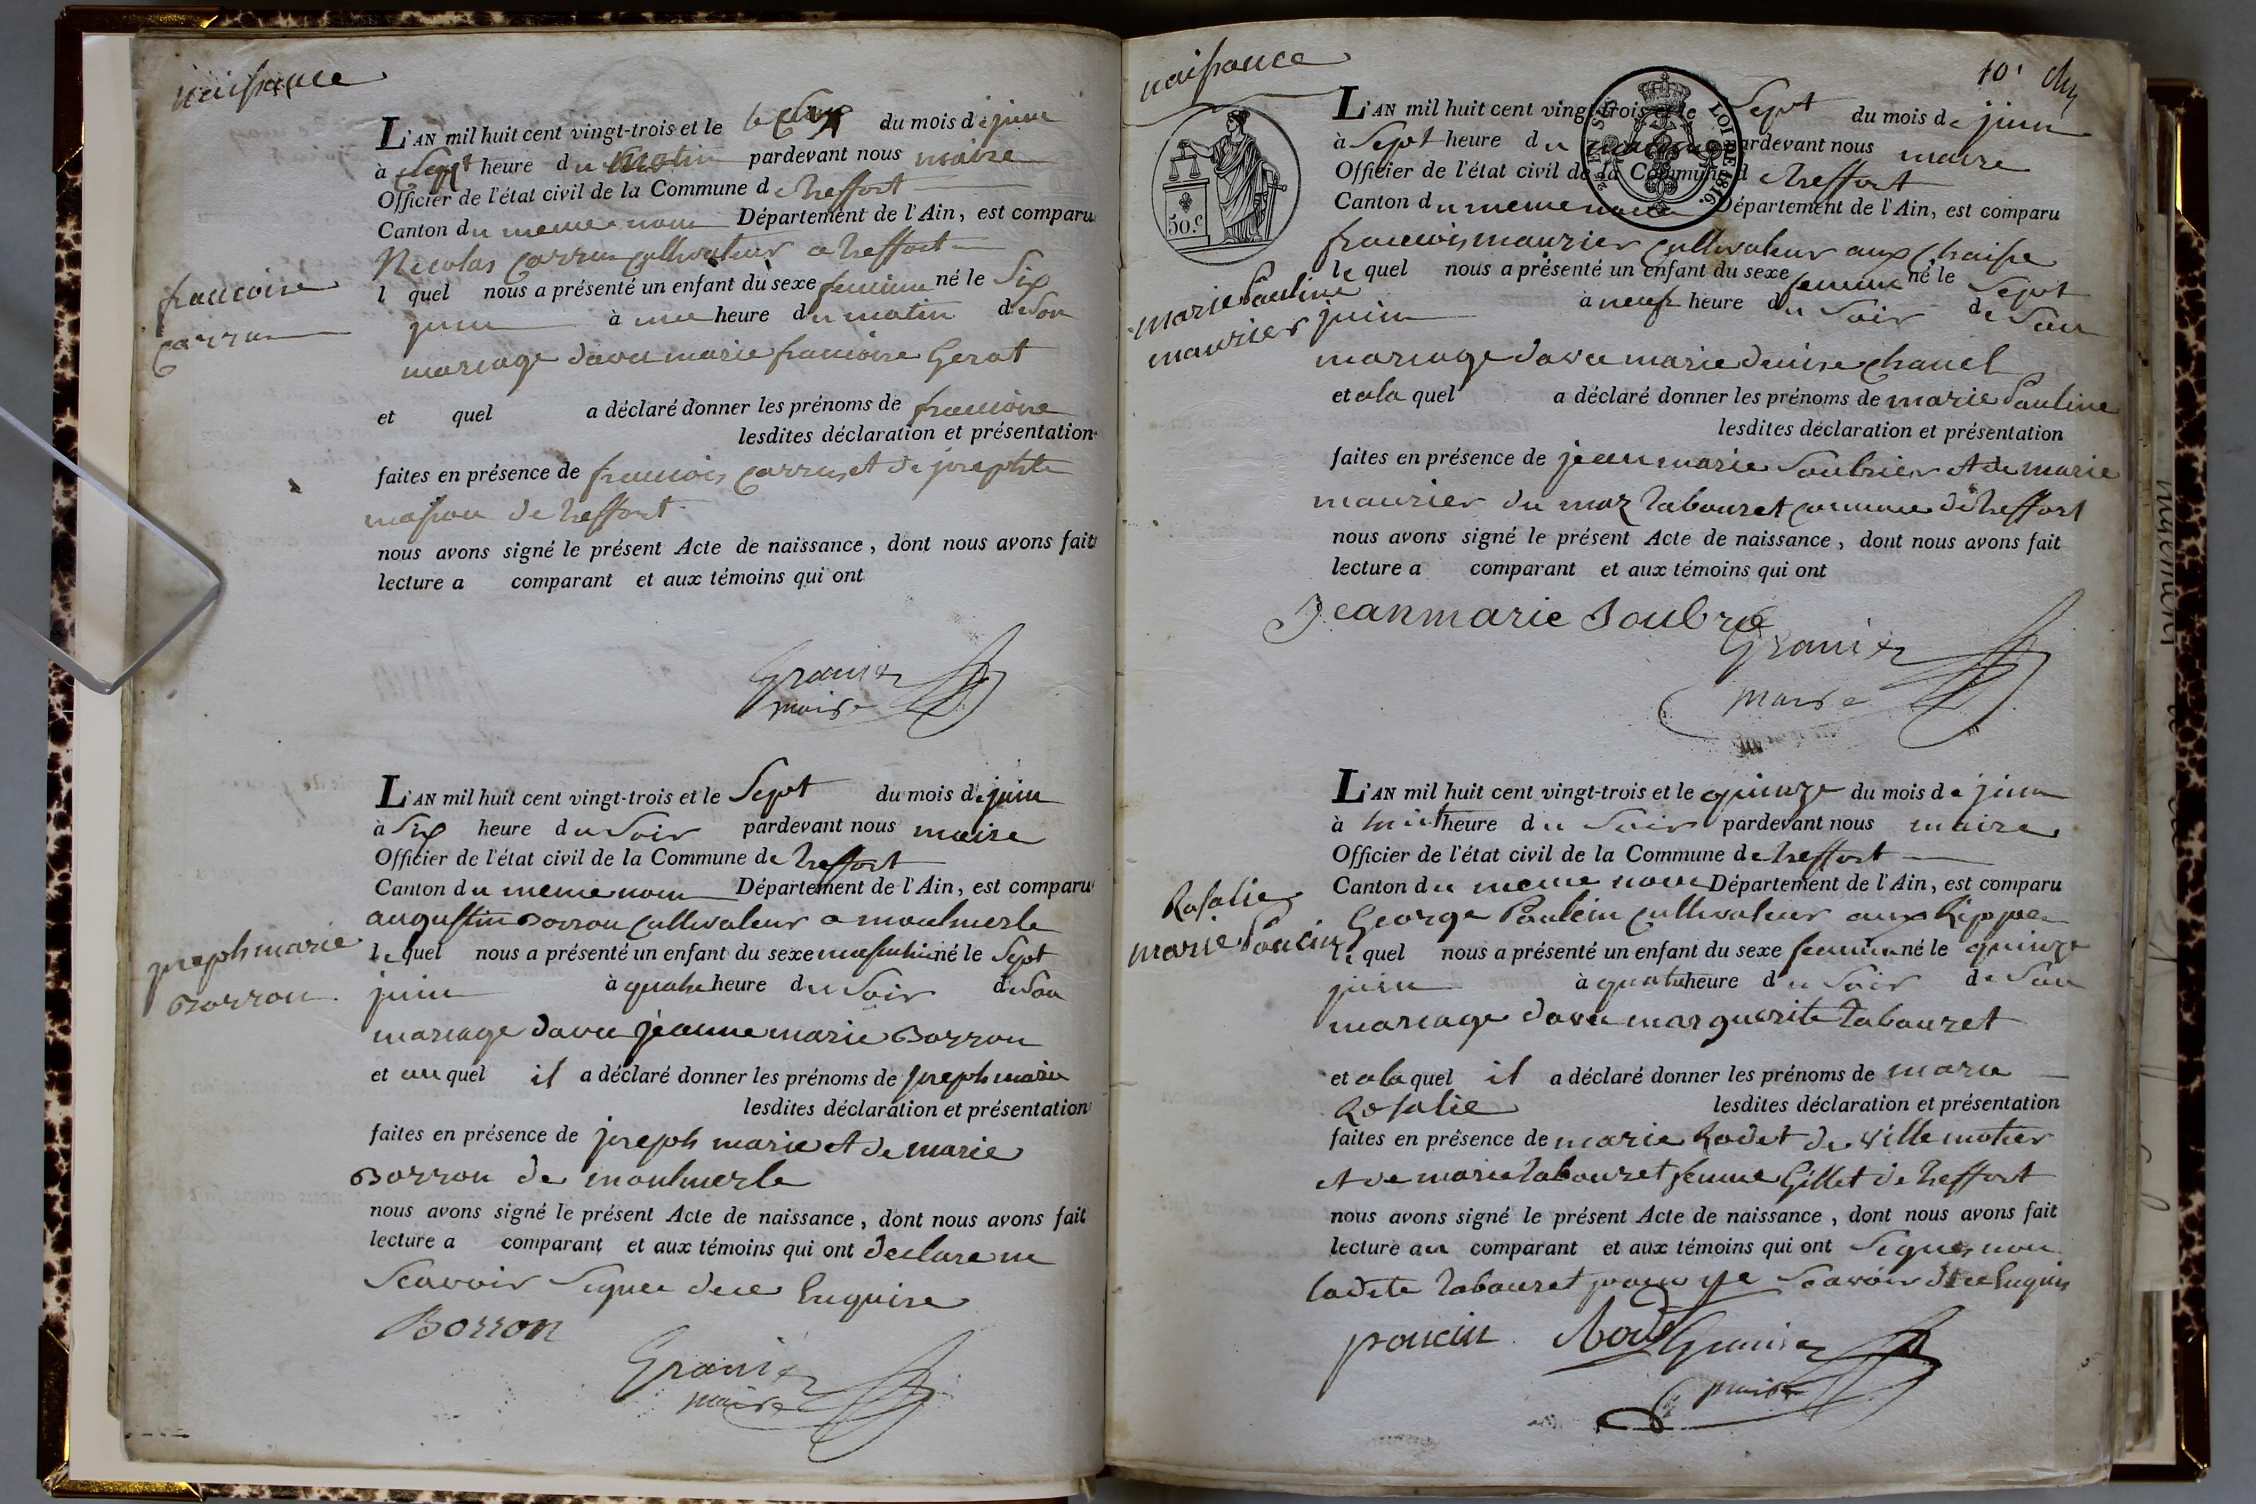 naissance
L'AN mil huit cent vingt-trois et le du mois de juin
à heure du matin pardevant nous maire
Officier de l'état civil de la Commune de treffort
Canton du meme nom Département de l'Ain, est comparu
Nicolas Carrus cultivateur a treffort
francoise
Carrus
l quel nous a présenté un enfant du sexe feminin né le Six
juin à une heure du matin de Son
mariage davec marie francoise Gerat
et quel a déclaré donner les prénoms de francoise
lesdites déclaration et présentation
faites en présence de francois Carrus et de josephte
masson de treffort
nous avons signé le présent Acte de naissance, dont nous avons fait
lecture a comparant et aux témoins qui ont
Granier
maire
L'AN mil huit cent vingt-trois et le Sept du mois de juin
à Six heure du Soir pardevant nous maire
Officier de l'état civil de la Commune de treffort
Canton du meme nom Département de l'Ain, est comparu
augustin Borron cultivateur a montmerle
joseph marie
Borron
le quel nous a présenté un enfant du sexe masculin né le Sept
juin à quatre heure du Soir de Son
mariage davec jeanne marie Borron
et au quel il a déclaré donner les prénoms de joseph marie
lesdites déclaration et présentation
faites en présence de joseph marie et de marie
Borron de montmerle
nous avons signé le présent Acte de naissance, dont nous avons fait
lecture a comparant et aux témoins qui ont declare ne
Scavoir Signer de ce Enquire
Borron
Granier
maire
naissance
10.
50.c
LOI DE 1816.
L'AN mil huit cent vingt-trois et le Sept du mois de juin
à Sept heure du pardevant nous maire
Officier de l'état civil de la Commune d treffort
Canton du meme nom Département de l'Ain, est comparu
francois maurier cultivateur aux Chaise
marie Pauline
maurier
le quel nous a présenté un enfant du sexe feminin né le Sept
juin à neuf heure du Soir de Son
mariage davec marie denise Chanel
et a la quel a déclaré donner les prénoms de marie Pauline
lesdites déclaration et présentation
faites en présence de jean marie Soubrier et de marie
maurier du maz tabouret commune de treffort
nous avons signé le présent Acte de naissance, dont nous avons fait
lecture a comparant et aux témoins qui ont
Jeanmarie Soubre
Granier
maire
L'AN mil huit cent vingt-trois et le quinze du mois de juin
à huit heure du Soir pardevant nous maire
Officier de l'état civil de la Commune de treffort
Canton du meme nom Département de l'Ain, est comparu
Rosalie
marie Poncin
George Poncin cultivateur aux Rippes
le quel nous a présenté un enfant du sexe feminin né le quinze
juin à quatre heure du Soir de Son
mariage davec marguerite tabouret
et a la quel il a déclaré donner les prénoms de marie
Rosalie lesdites déclaration et présentation
faites en présence de marie Rodet de Villemotier
et de marie tabouret femme Gillet de treffort
nous avons signé le présent Acte de naissance, dont nous avons fait
lecture au comparant et aux témoins qui ont Signer non
ladite tabouret pour ne Scavoir de ce Enquis
poncin Rodet Granier
maire